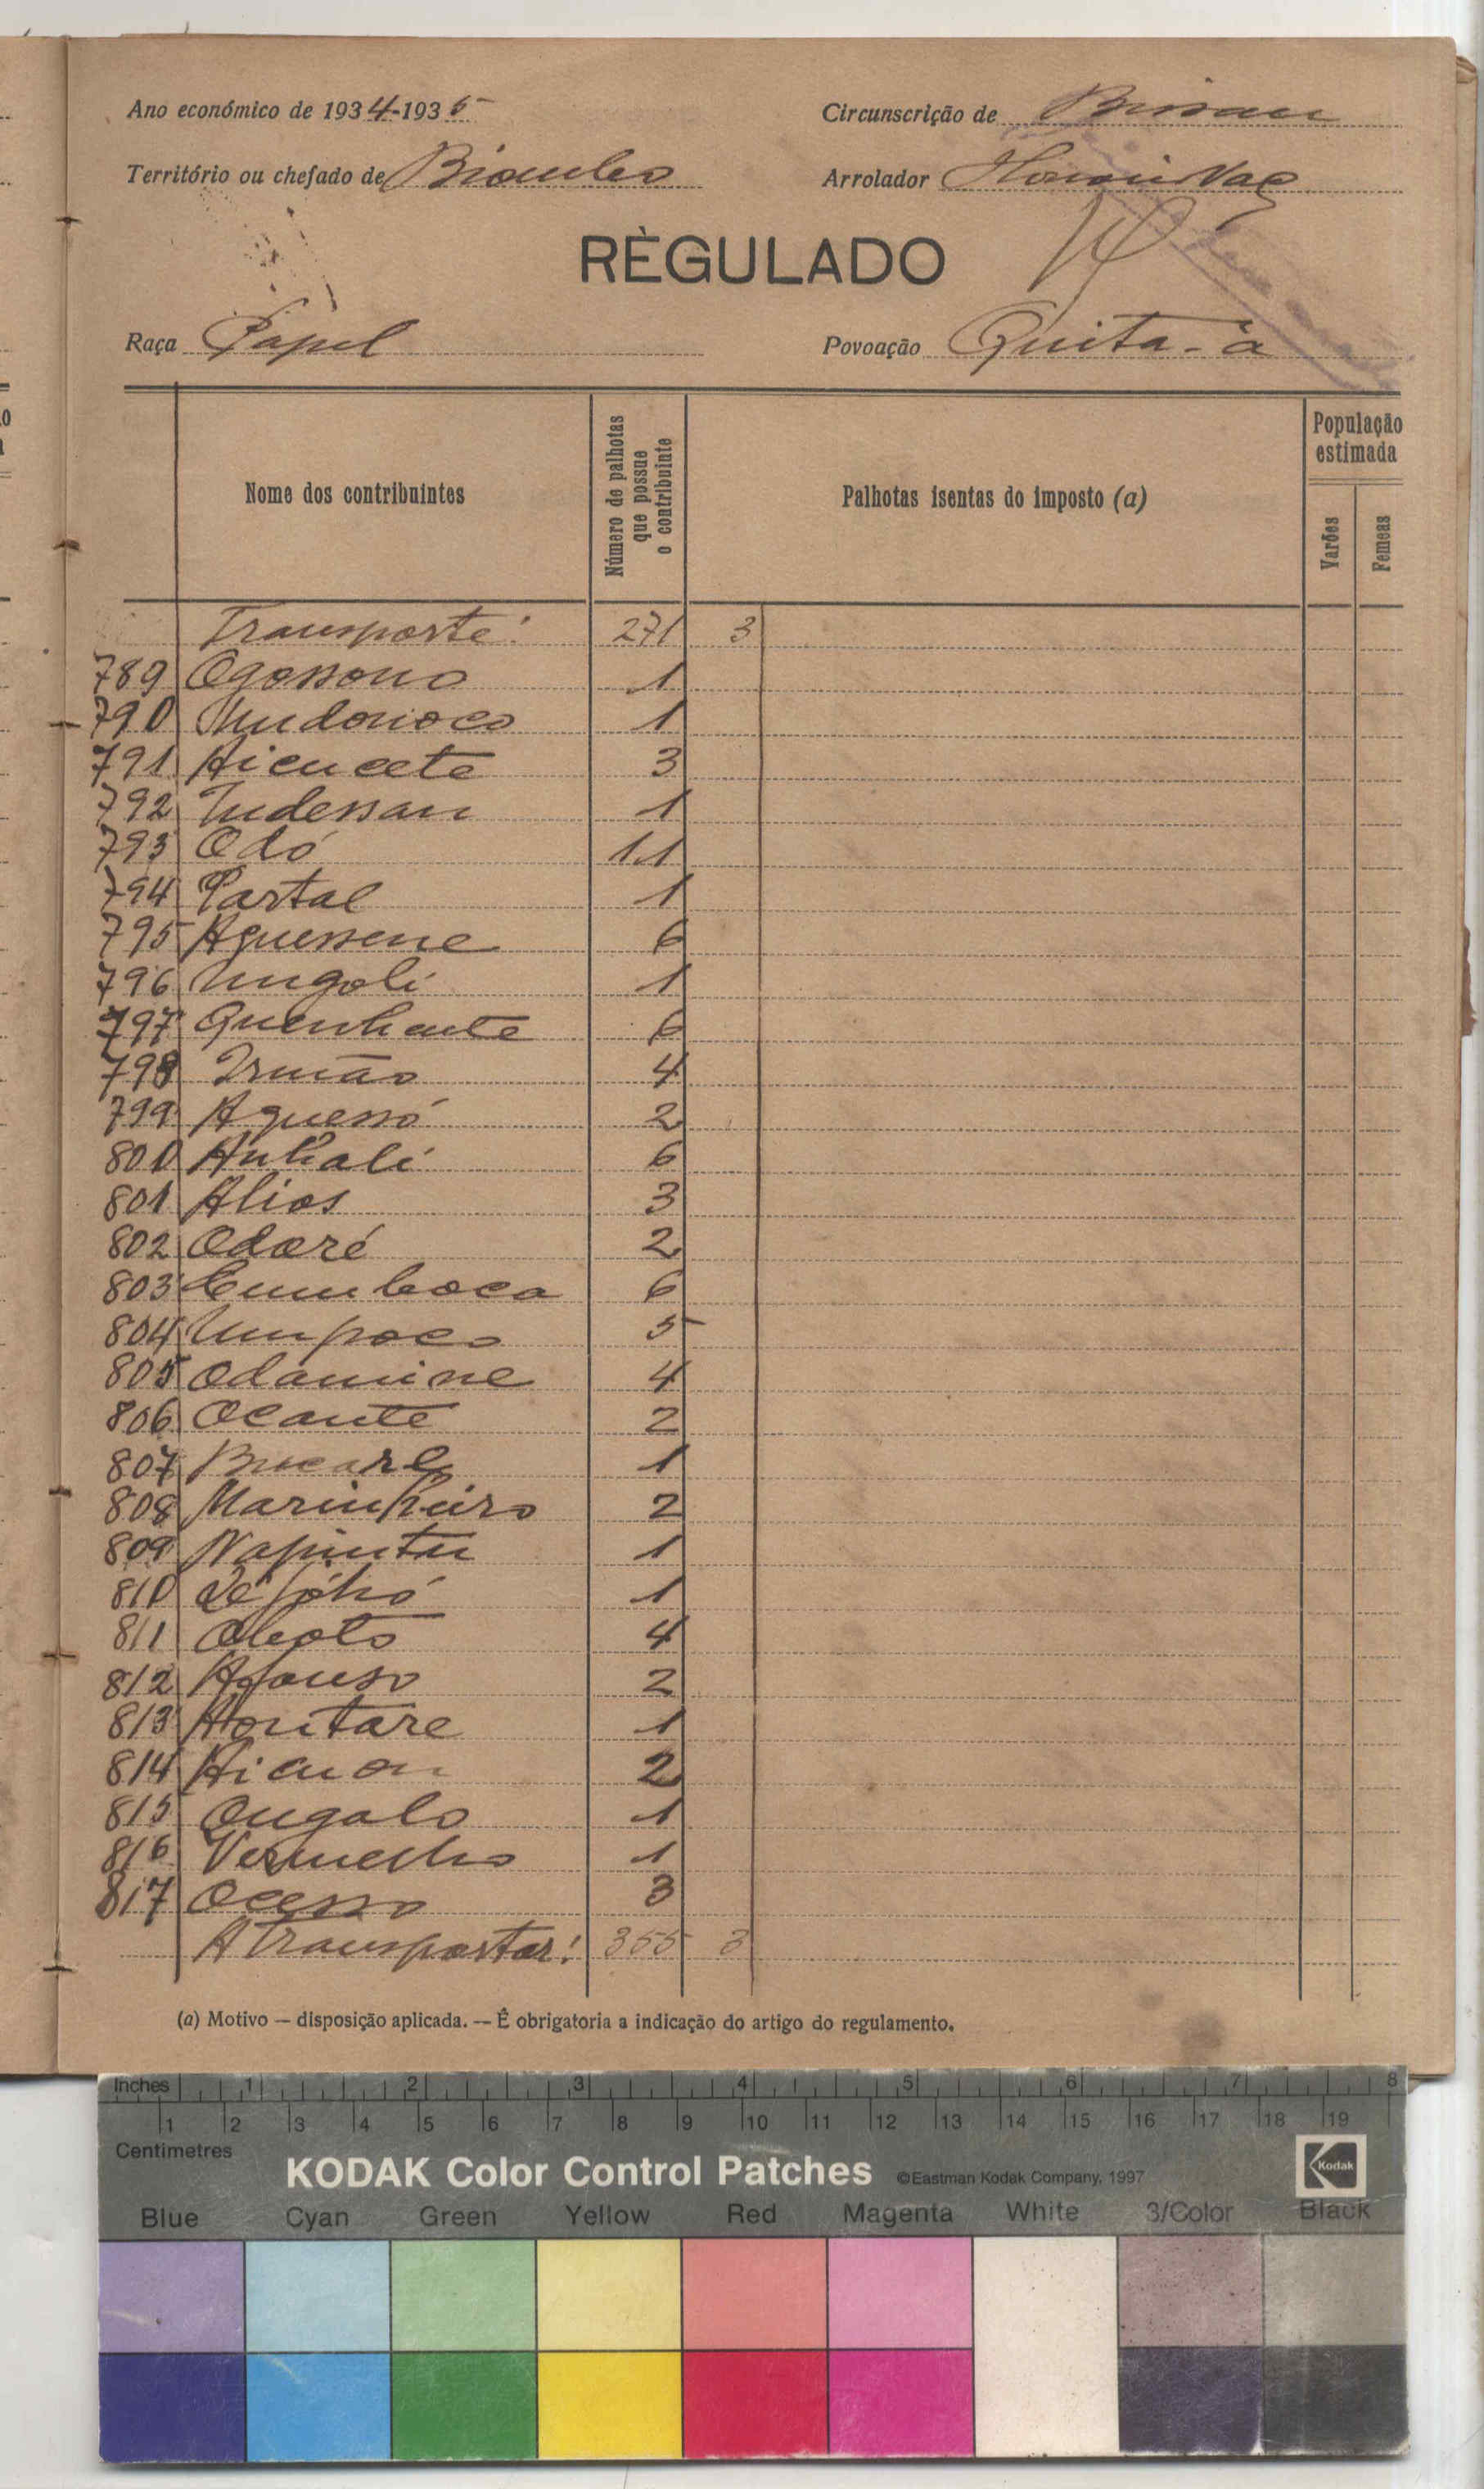 Ano económico de 1934-1935
Circunscrição de Bissau
Território ou chefado de Biombo
Arrolador
RÈGULADO
Raça Papel
Povoação Quita-á
Nome dos contribuintes
Número de palhotas que possue o contribuinte
Palhotas isentas do imposto (a)
População estimada
Varões
Femeas
Transporte: 271 3
789 Ogossono 1
790 1
791 3
792 Indessan 1
793 Odó 11
794 Partal 1
795 Aguessene 6
796 Ungoli 1
797 Quenhante 6
798 Irmão 4
799 Aguessó 2
800 Anhali 6
801 Alios 3
802 Odoré 2
803 Cumboca 6
804 Umpoco 5
805 Odamine 4
806 Ocante 2
807 1
808 Marinheiro 2
809 Napintu 1
810 1
811 4
812 Afonso 2
813 1
814 2
815 Ongalo 1
816 Vermelho 1
817 Ocesso 3
A transportar: 355 3
(a) Motivo — disposição aplicada. — É obrigatoria a indicação do artigo do regulamento.
Inches 1 2 3 4 5 6 7 8
1 2 3 4 5 6 7 8 9 10 11 12 13 14 15 16 17 18 19
Centimetres
KODAK Color Control Patches ©Eastman Kodak Company, 1997 Kodak
Blue Cyan Green Yellow Red Magenta White 3/Color Black